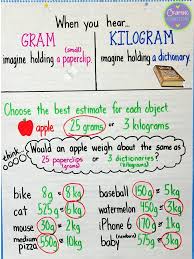 When you hear...
GRAM
(small)
imagine holding a paperclip.
KILOGRAM
imagine holding a dictionary.
Choose the best estimate for each object.
apple 25 grams or 3 kilograms
think
Would an apple weigh about the same as
25 paperclips or 3 dictionaries?
(grams) (kilograms)
bike 8g or 8kg
cat 525g or 6kg
mouse 30g or 2kg
medium pizza 550g or 10kg
baseball 150g or 5kg
watermelon 450g or 3kg
iPhone 6 170g or 1kg
baby 575g or 5kg